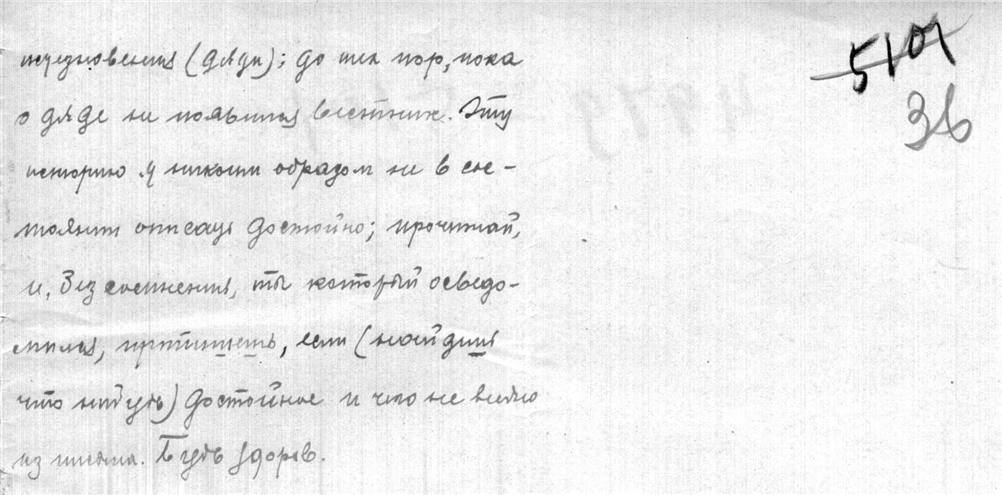 исчезновения (дяди); до тех пор, пока
о дяде не появился вестник. Эту
историю я никоим образом не в сос-
тоянии описать достойно; прочитай,
и, без сомнения, ты который осведо-
мился, припишешь, если (найдешь
что нибудь) достойное и что не видно
из письма. Будь здоров.
5101
36